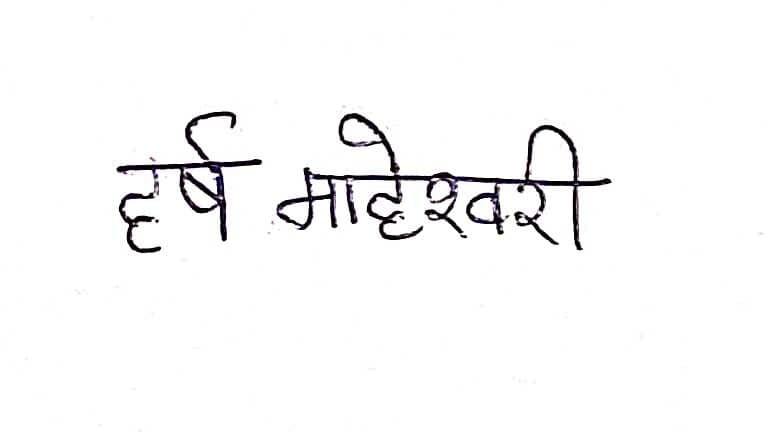 हर्ष माहेश्वरी